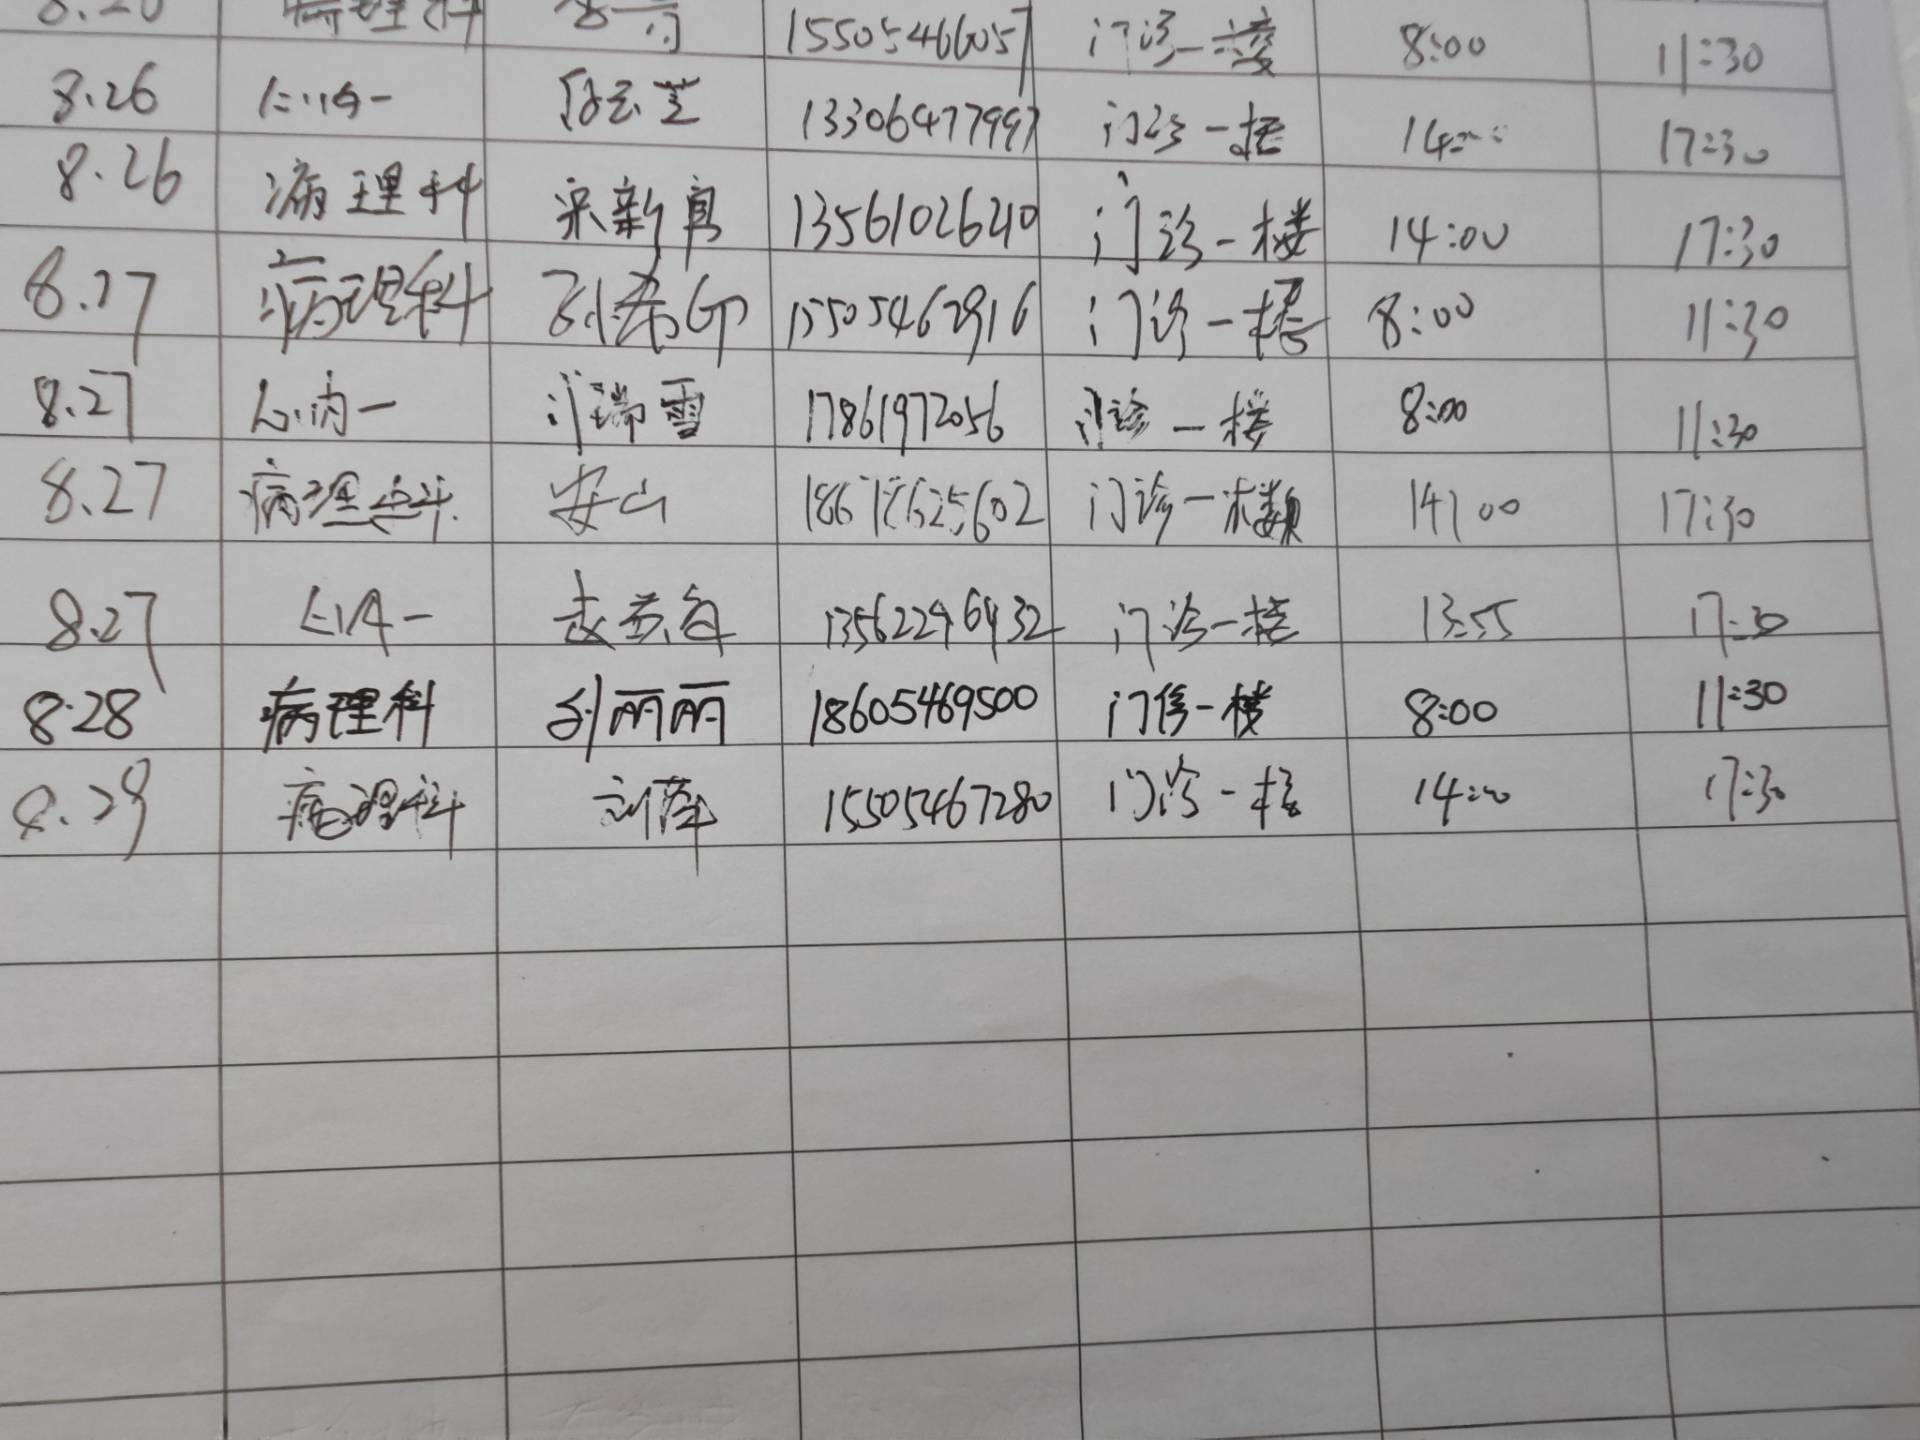 病理科 15505466057 门诊一楼 8:00 11:30
8.26 心内一 13306477997 门诊一楼 14:00 17:30
8.26 病理科 宋新 13561026210 门诊一楼 14:00 17:30
8.27 病理科 15505462916 门诊一楼 8:00 11:30
8.27 心内一 瑞雪 17861972056 门诊一楼 8:00 11:30
8.27 病理科 安山 18678625602 门诊一楼 14:00 17:30
8.27 心内一 13562296932 门诊一楼 13:55 17:30
8.28 病理科 刘丽丽 18605469500 门诊一楼 8:00 11:30
8.29 病理科 刘萍 15505467280 门诊一楼 14:00 17:30